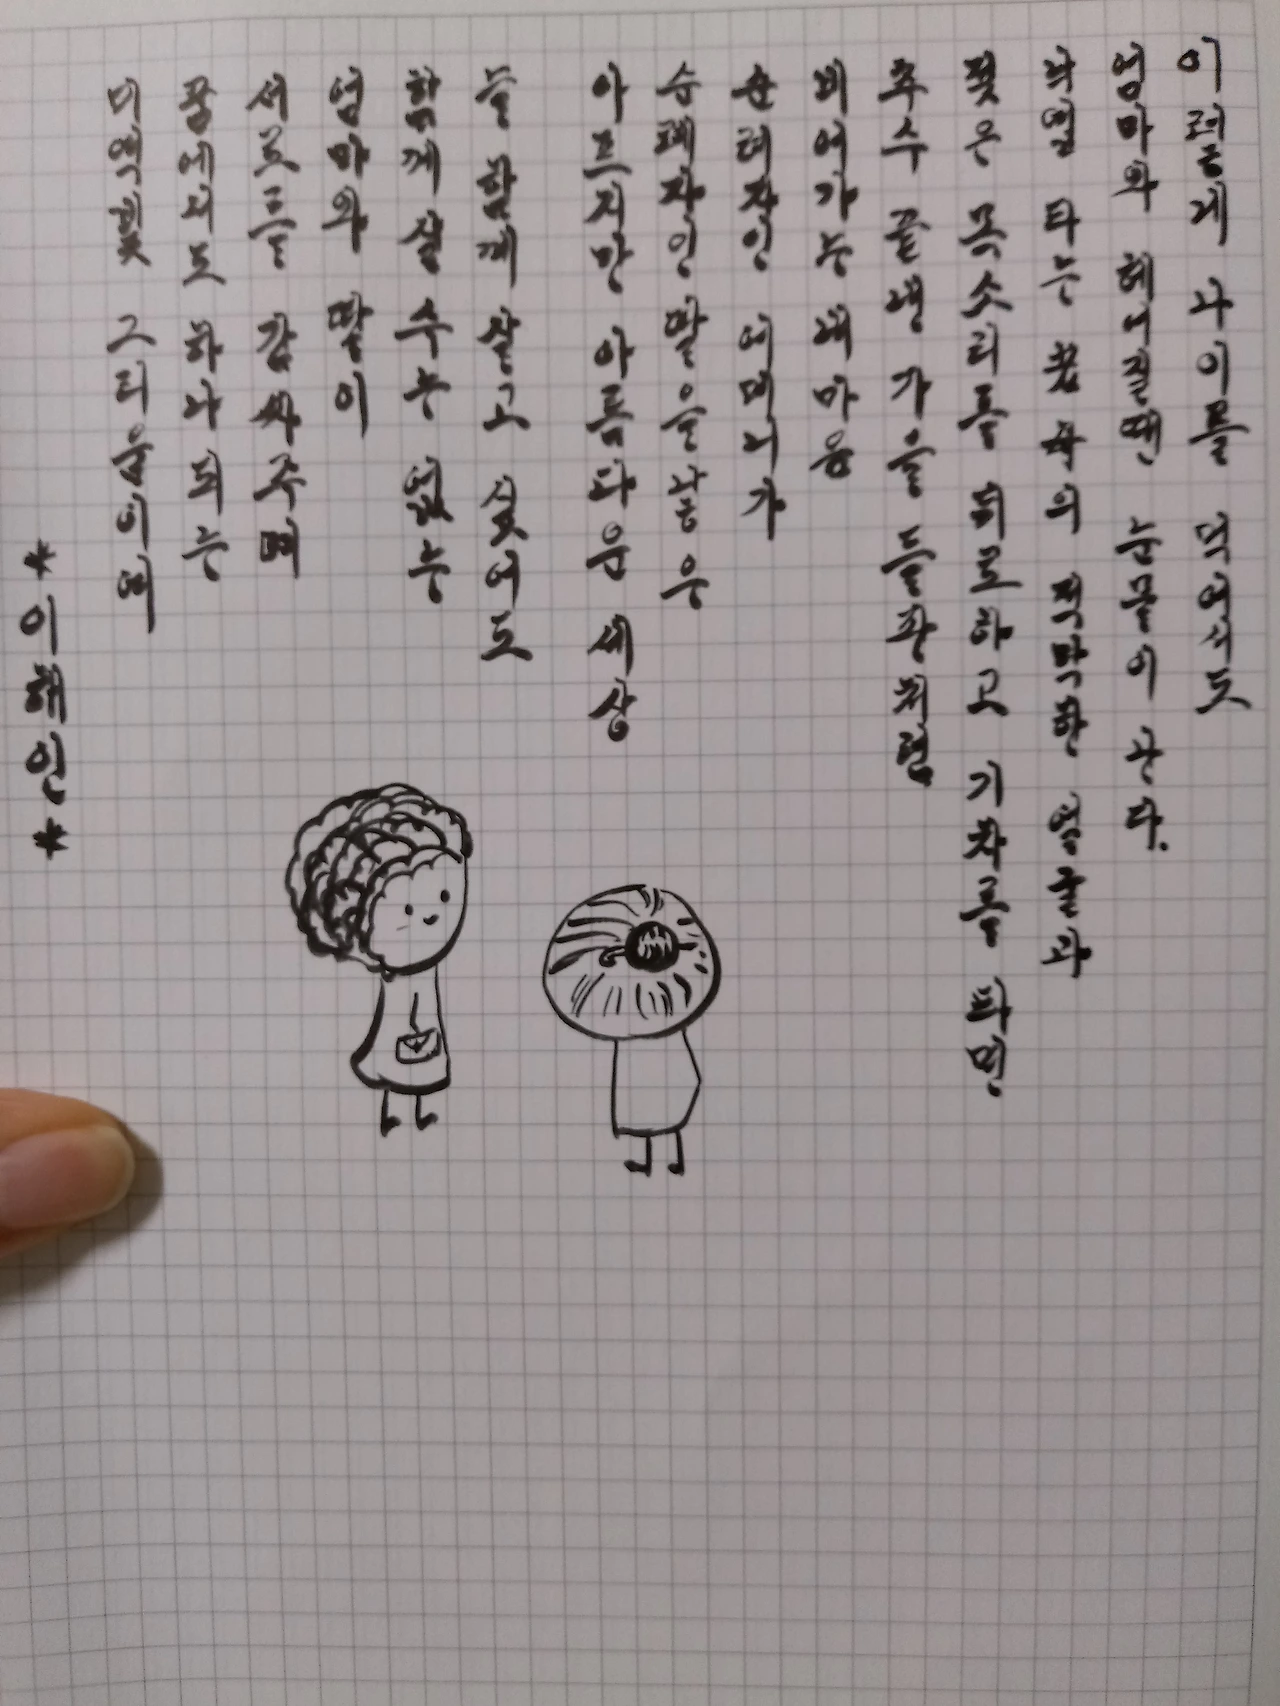 이렇게 나이를 먹어서도
엄마와 헤어질땐 눈물이 난다.
낙엽 타는 적막한 얼굴과
젖은 목소리를 뒤로하고 기차를 타면
추수 끝낸 가을 들판처럼
비어가는 내 마음
순례자인 어머니가
순례자인 딸을 낳은
아프지만 아름다운 세상
늘 함께 살고 싶어도
함께 살 수는 없는
엄마와 딸이
서로를 감싸주며
꿈에서도 하나 되는
미역빛 그리움이여
*이해인*